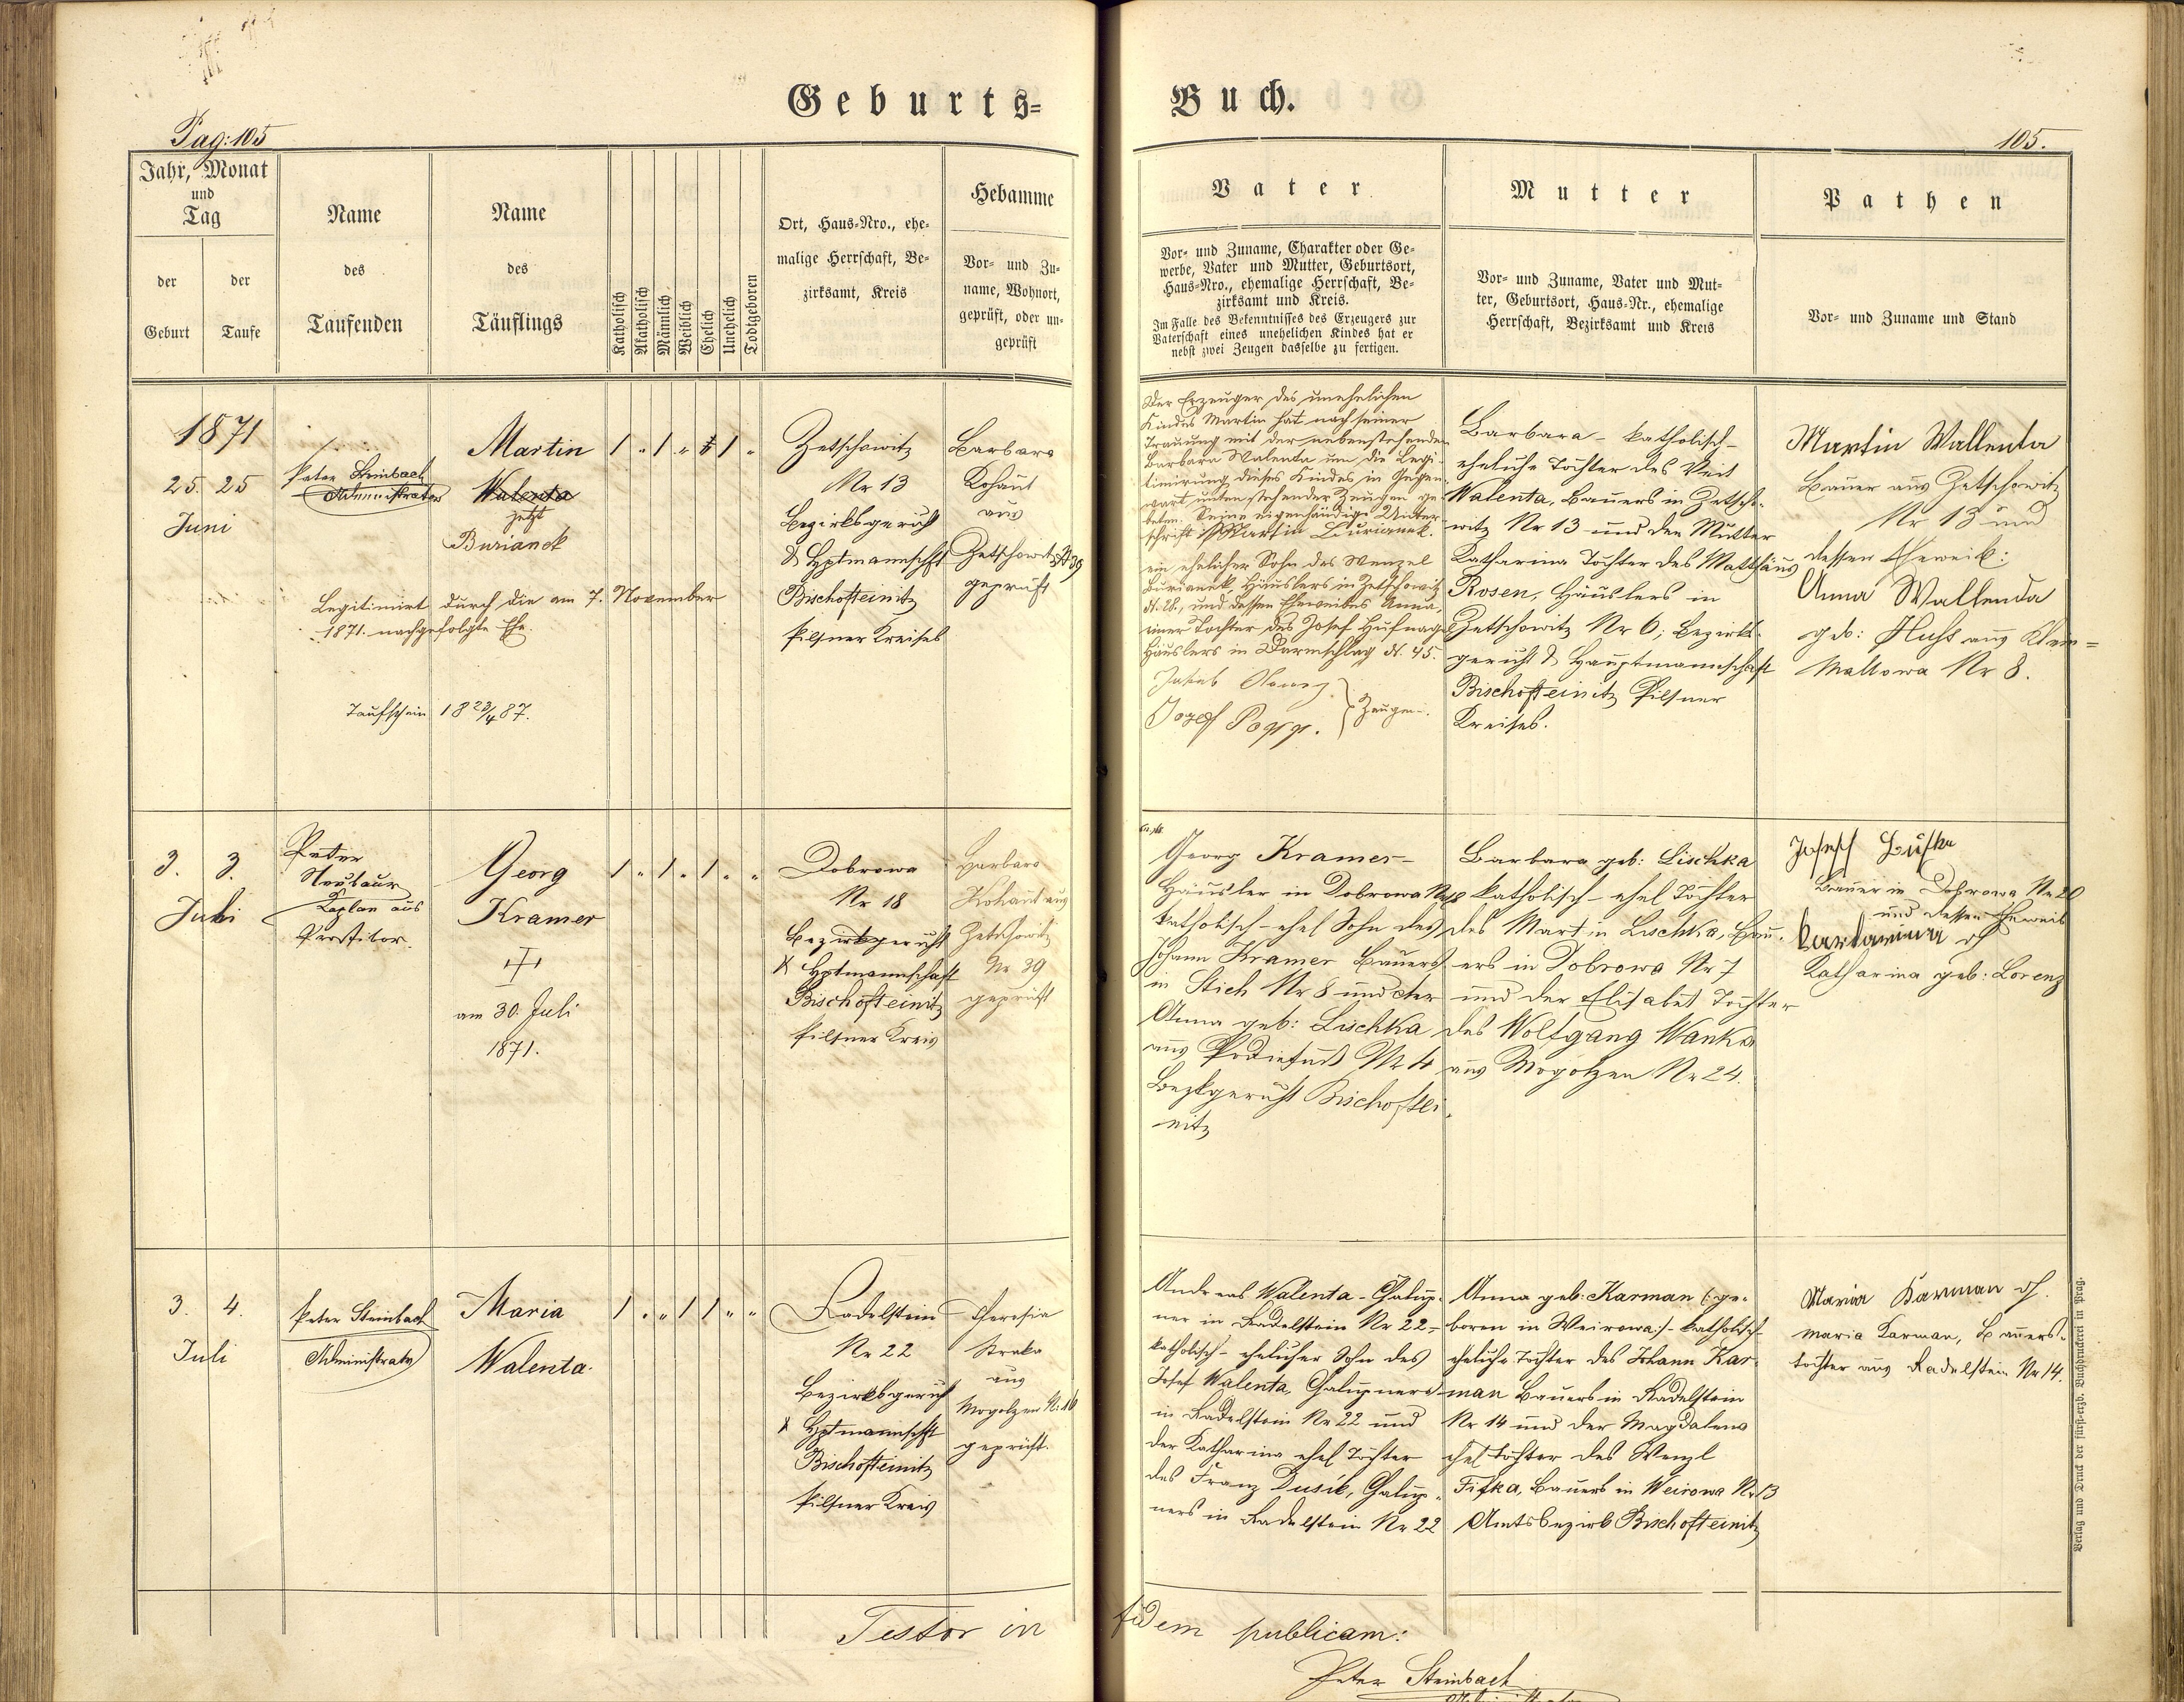 Geburts=
Buch.
Pag: 105
105.
Jahr, Monat
und
Tag
der
Geburt
der
Taufe
Name
des
Taufenden
Name
des
Täuflings
Katholisch
Akatholisch
Männlich
Weiblich
Ehelich
Unehelich
Todtgeboren
Ort, Haus=Nro., ehe=
malige Herrschaft, Be=
zirksamt, Kreis
Hebamme
Vor= und Zu=
name, Wohnort,
geprüft, oder un=
geprüft
Vater
Vor= und Zuname, Charakter oder Ge=
werbe, Vater und Mutter, Geburtsort,
Haus=Nro., ehemalige Herrschaft, Be=
zirksamt und Kreis.
Im Falle des Bekenntnisses des Erzeugers zur
Vaterschaft eines unehelichen Kindes hat er
nebst zwei Zeugen dasselbe zu fertigen.
Mutter
Vor= und Zuname, Vater und Mut=
ter, Geburtsort, Haus=Nr., ehemalige
Herrschaft, Bezirksamt und Kreis
Pathen
Vor= und Zuname und Stand
1871
25. 25
Juni
Peter Steinbach
Administrator
Martin
Walenta
jetzt
Burianek
1 " 1 " 1 1 "
Legitimirt durch die am 7. November
1871. nachgefolgte Ehe.
Taufschein 18 23/4 87.
Zetschowitz
Nr 13
Bezirksgericht
& Hptmannschft
Bischofteinitz
Pilsner Kreises
Barbara
Kohaut
aus
Zetschowitz N 39
geprüft
Der Erzeuger des unehelichen
Kindes Martin hat nach seiner
Trauung mit der nebenstehenden
Barbara Walenta um die Legi-
timirung dieses Kindes in Gegen-
wart untenstehender Zeugen ge-
beten. Seine eigenhändige Unter-
schrift Martin Burianek.
ein ehelicher Sohn des Wenzel
Burianek Häuslers in Zetschowitz
N. 28., und dessen Eheweibes Anna,
einer Tochter des Josef Hufnagel
Häuslers in Darmschlag N. 45.
Jakob
Josef Popp. Zeugen.
Barbara - katholisch -
eheliche Tochter des Veit
Walenta, Bauers in Zetscho-
witz Nr 13 und der Mutter
Katharina Tochter des Matthäus
Rosen, Häuslers in
Zetschowitz Nr 6; Bezirks-
gericht & Hauptmannschaft
Bischofteinitz Pilsner
Kreises.
Martin Wallenta
Bauer aus Zetschowitz
Nr 13 und
dessen Eheweib:
Anna Wallenda
geb: Huss aus Klein=
Mallowa Nr 8.
3. 3.
Juli
Peter
Neubaur
Kaplan aus
Prostibor.
Georg
Kramer
am 30. Juli
1871.
1 " 1 " 1 " "
Dobrowa
Nr 18
Bezirksgericht
& Hptmannschaft
Bischofteinitz
Pilsner Kreis
Barbara
Kohaut aus
Zetschowitz
Nr 39
geprüft
Georg Kramer -
Häusler in Dobrowa Nr 18
katholisch - ehel Sohn des
Johann Kramer Bauers
in Stich Nr 8 und der
Anna geb: Lischka
aus Nr 4
Bezkgericht Bischoftei
nitz
Barbara geb: Lischka
katholisch - ehel Tochter
des Martin Lischka, Bau-
ers in Dobrowa Nr 7
und der Elisabet Tochter
des Wolfgang Wanka
aus Mogolzen Nr 24.
Josef
Bauer in Dobrowa Nr 20
und dessen Eheweib
Katharina geb: Lorenz
3. 4.
Juli
Peter Steinbach
Administrator
Maria
Walenta.
1 " " 1 1 " "
Radelstein
Nr 22
Bezirksgericht
& Hptmannschft
Bischofteinitz
Pilsner Kreis
Theresia
Straka
aus
Mogolzen N. 16
geprüft.
Andreas Walenta - Chalup-
ner in Radelstein Nr 22 -
katholisch - ehelicher Sohn des
Josef Walenta Chalupners
in Radelstein Nr 22 und
der Katharina ehel Tochter
des Franz Dusik, Chalup-
ners in Radelstein Nr 22
Anna geb: Karman (: ge-
boren in Weirowa :) - katholisch -
eheliche Tochter des Johann Kar-
man Bauers in Radelstein
Nr 14 und der Magdalena
ehel Tochter des Wenzl
Fiska, Bauers in Weirowa Nr 13
Amtsbezirk Bischofteinitz
Maria Karman
Maria Karman, Bauers-
tochter aus Radelstein Nr 14.
Testor in fidem publicam:
Peter Steinbach
Verlag und Druck der fürst=erzb. Buchdruckerei in Prag.